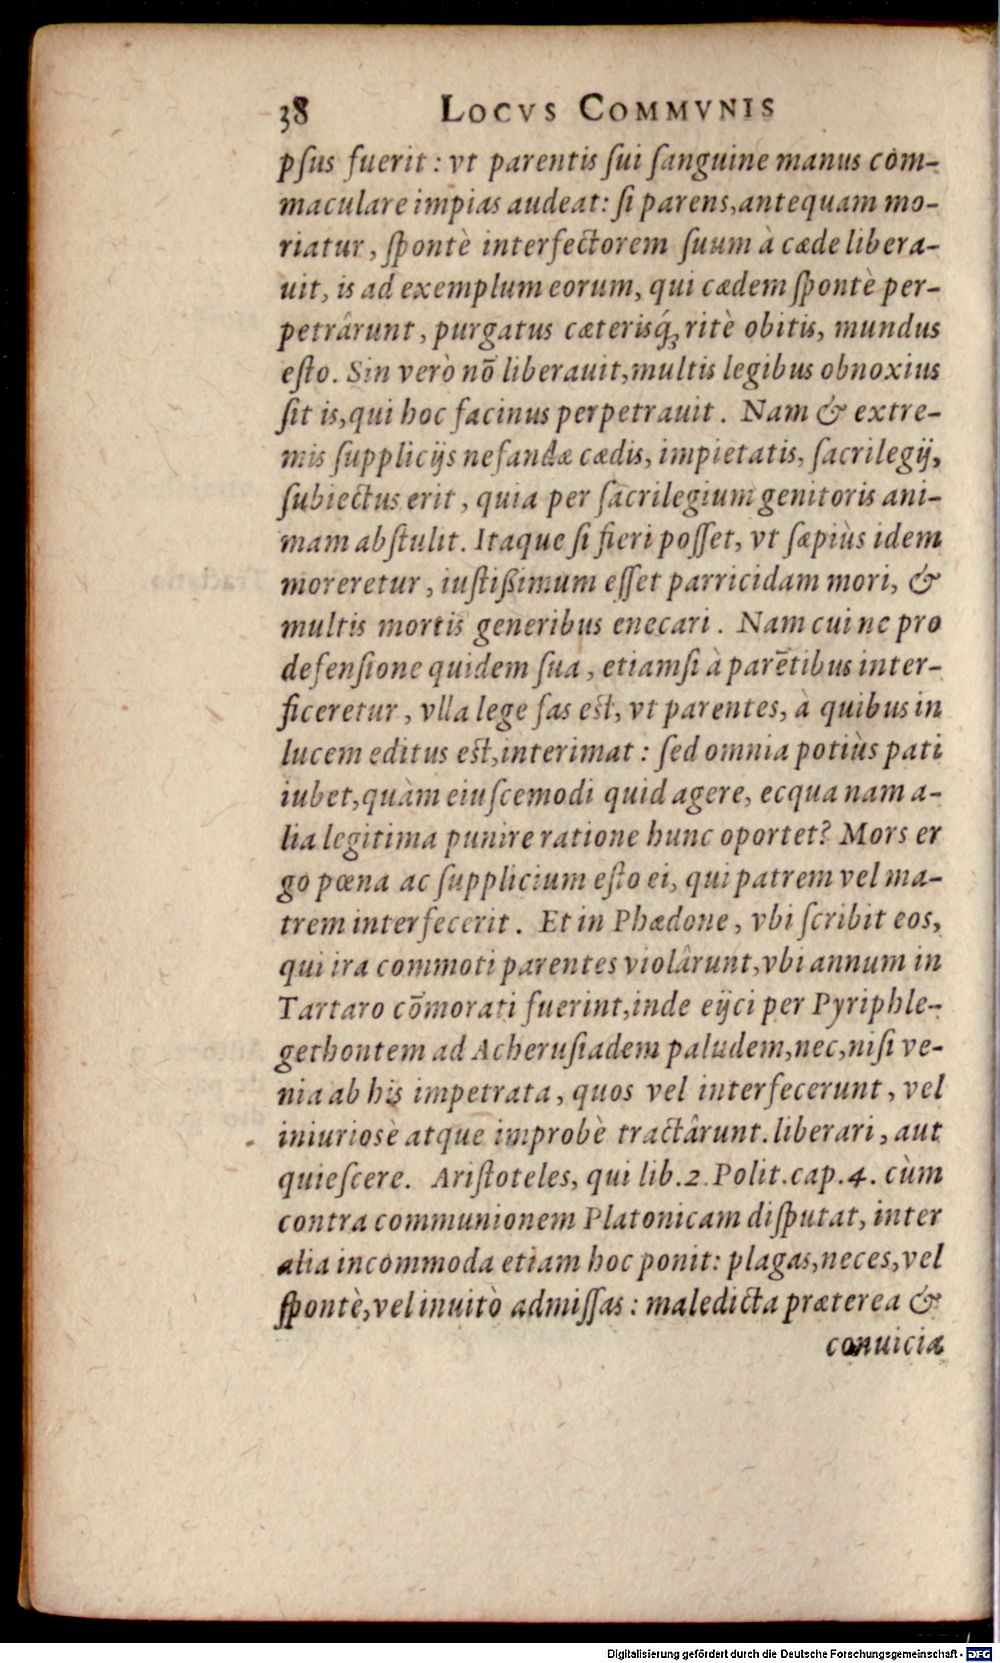 38 LOCVS COMMVNIS
pſus fuerit: vt parentis ſui ſanguine manus com-
maculare impias audeat: ſi parens, antequam mo-
riatur, ſpontè interfectorem ſuum à cæde libera-
uit, is ad exemplum eorum, qui cædem ſpontè per-
petrârunt, purgatus cæterisq́; ritè obitis, mundus
eſto. Sin verò nō liberauit, multis legibus obnoxius
ſit is, qui hoc facinus perpetrauit. Nam & extre-
mis ſupplicijs nefandæ cædis, impietatis, ſacrilegij,
ſubiectus erit, quia per ſacrilegium genitoris ani-
mam abſtulit. Itaque ſi fieri poſſet, vt ſæpiùs idem
moreretur, iuſtißimum eſſet parricidam mori, &
multis mortis generibus enecari. Nam cui ne pro
defenſione quidem ſua, etiamſi à parētibus inter-
ficeretur, vlla lege fas eſt, vt parentes, à quibus in
lucem editus eſt, interimat: ſed omnia potiùs pati
iubet, quàm eiuſcemodi quid agere, ecqua nam a-
lia legitima punire ratione hunc oportet? Mors er
go pœna ac ſupplicium eſto ei, qui patrem vel ma-
trem interfecerit. Et in Phædone, vbi ſcribit eos,
qui ira commoti parentes violârunt, vbi annum in
Tartaro cōmorati fuerint, inde eijci per Pyriphle-
gethontem ad Acheruſiadem paludem, nec, niſi ve-
nia ab his impetrata, quos vel interfecerunt, vel
iniuriosè atque improbè tractârunt. liberari, aut
quieſcere. Ariſtoteles, qui lib. 2. Polit. cap. 4. cùm
contra communionem Platonicam diſputat, inter
alia incommoda etiam hoc ponit: plagas, neces, vel
ſpontè, vel inuitò admiſſas: maledicta præterea &
conuicia
Digitalisierung gefördert durch die Deutsche Forschungsgemeinschaft - DFG